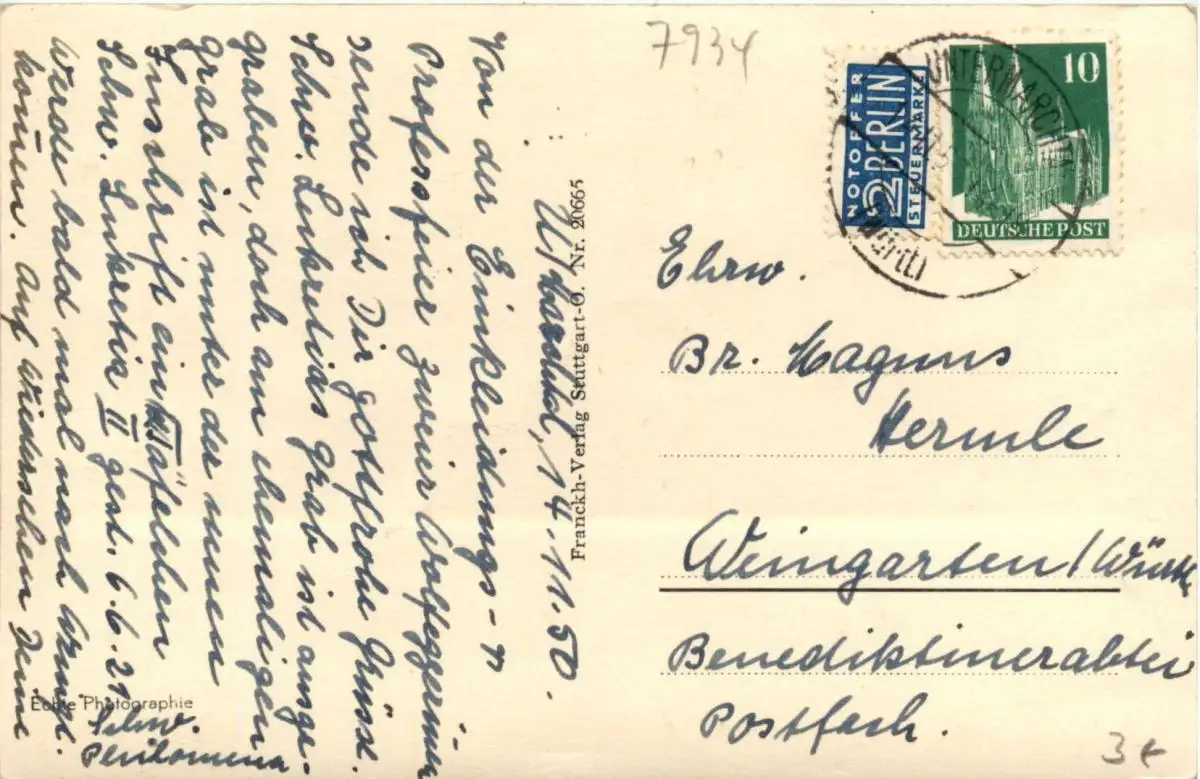 7934
NOTOPFER
2 BERLIN
STEUERMARKE
10
DEUTSCHE POST
UNTERMARCHTAL
(Württ)
U/Marchtal, 14.11.50.
Von der Einkleidungs- u
Professfeier zweier Wolfeggerinnen
sende ich Dir gottfrohe Grüsse.
Schw. Lukretias Grab ist ausge-
graben, doch am ehemaligen
Grabe ist unter der neuen
Inschrift ein Täfelchen
Schw. Lukretia II gest. 6.6.21
Werde bald mal nach Wgt.
komen. Auf Wiedersehen Deine
Schw.
Philomena
Echte Photographie
Franckh-Verlag Stuttgart-O. Nr. 20665
Ehrw.
Br. Magnus
Hermle
Weingarten/Württ
Benediktinerabtei
Postfach.